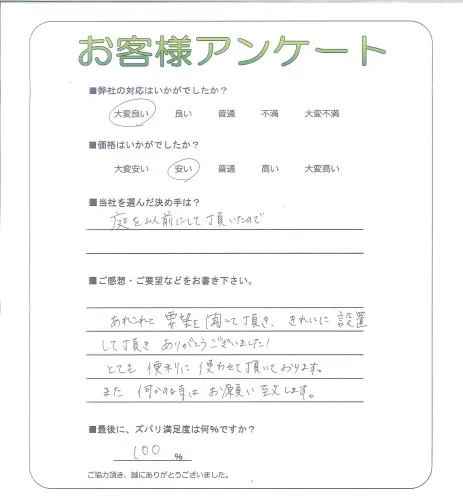 お客様アンケート
■弊社の対応はいかがでしたか?
大変良い 良い 普通 不満 大変不満
■価格はいかがでしたか?
大変安い 安い 普通 高い 大変高い
■当社を選んだ決め手は?
庭を以前にして頂いたので
■ご感想・ご要望などをお書き下さい。
あれこれと 要望を聞いて頂き、きれいに設置
して頂き ありがとうございました!
とても 便利に 使わせて頂いております。
また 何かの時は お願い致します。
■最後に、ズバリ満足度は何%ですか?
100 %
ご協力頂き、誠にありがとうございました。